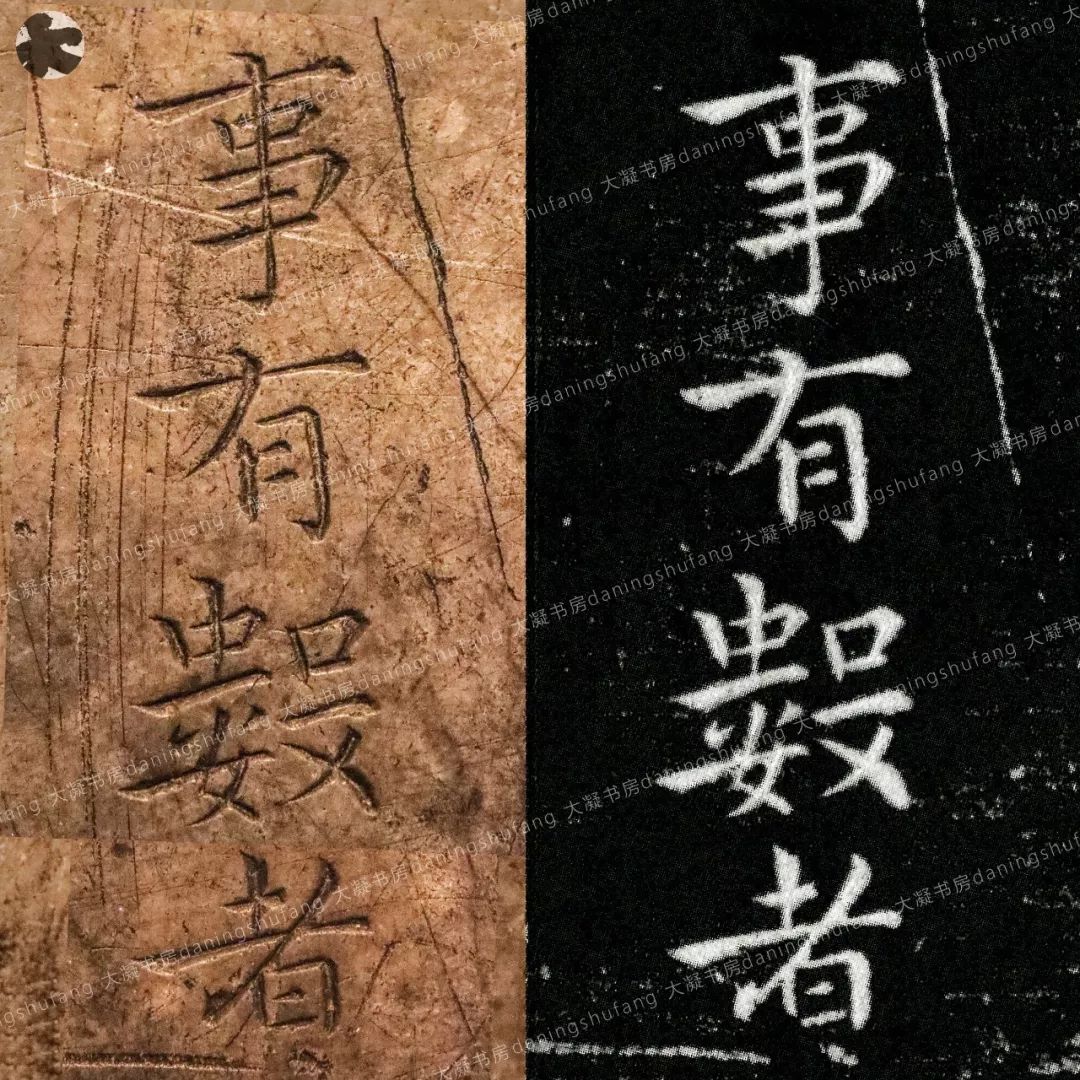 事有數者
事有數者
大凝书房daningshufang